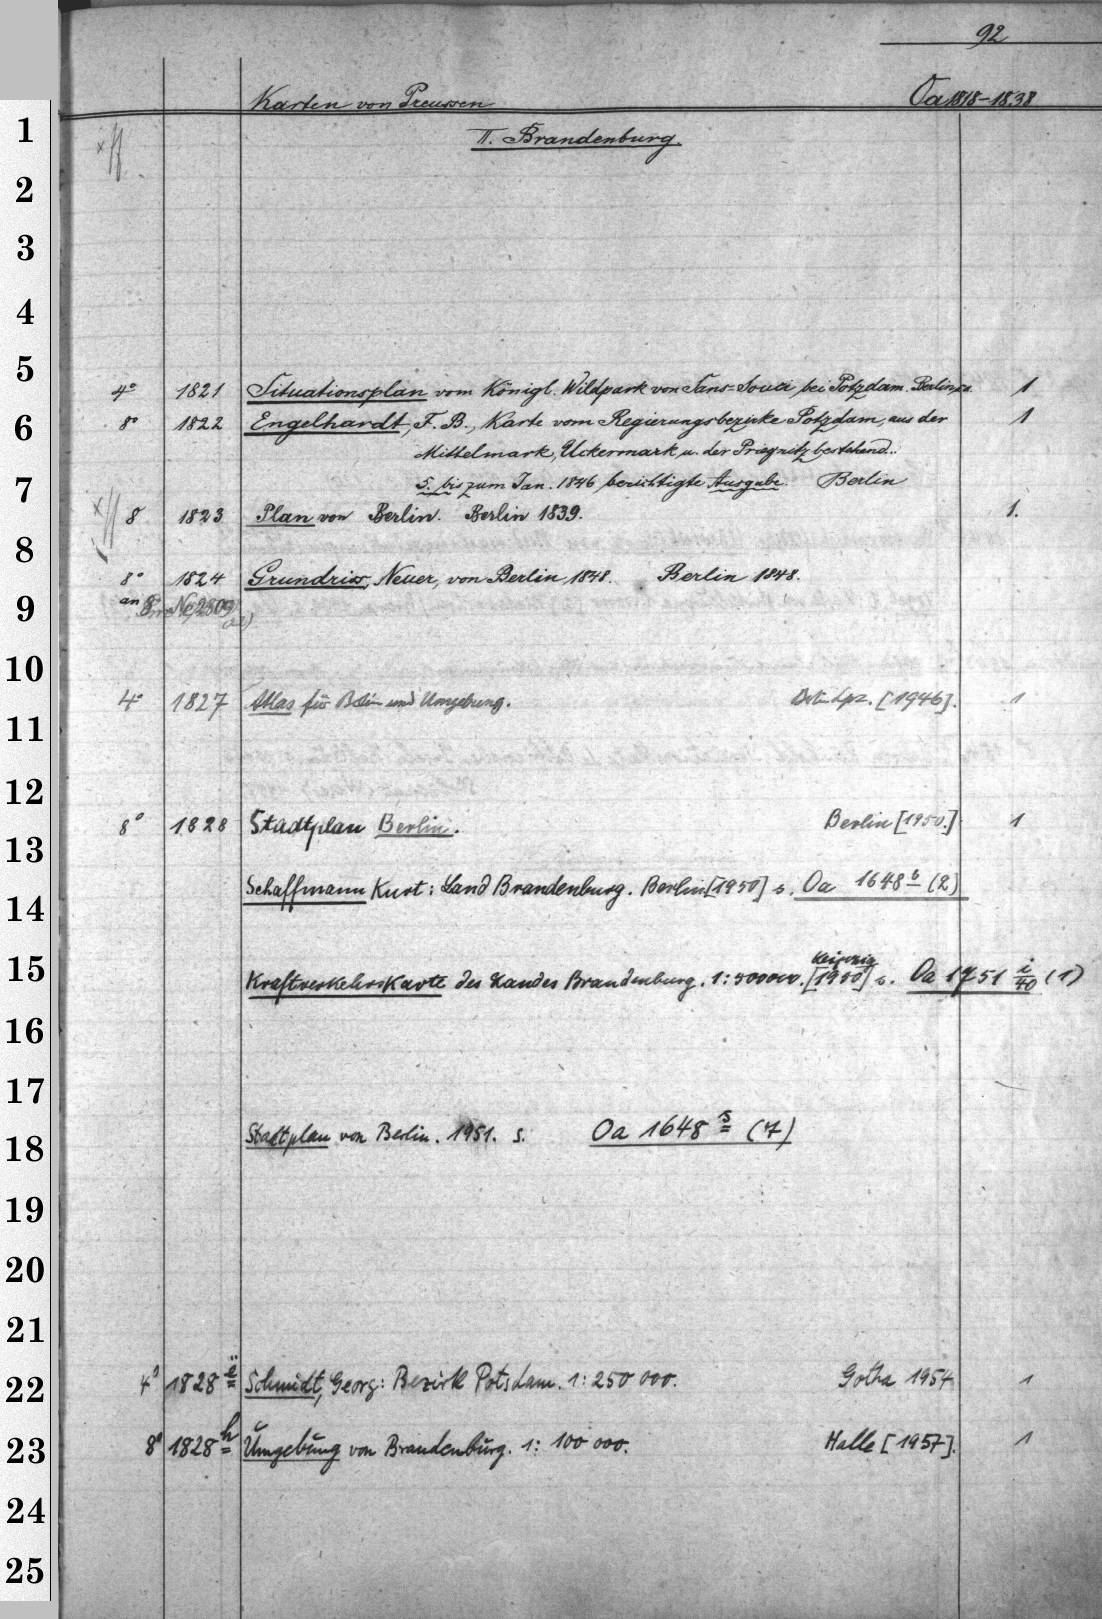 92
Karten von Preussen Oa 1818-1838
1
II. Brandenburg.
2
3
4
5
4° 1821 Situationsplan vom Königl. Wildpark von Sans-Souci bei Potzdam. Berlin 1
6 8° 1822 Engelhardt, F. B., Karte vom Regierungsbezirke Potzdam, aus der 1
Mittelmark, Uckermark u. der Priegnitz bestehend.
7 5. bis zum Jan. 1846 berichtigte Ausgabe. Berlin
8 1823 Plan von Berlin. Berlin 1839. 1.
8
8° 1824 Grundriss, Neuer, von Berlin, 1848. Berlin 1848.
9 an 8°
10
4° 1827 Atlas für Berlin und Umgebung. Lpz. [1946]. 1
11
12
8° 1828 Stadtplan Berlin. Berlin [1950.] 1
13
Schaffmann Kurt: Land Brandenburg. Berlin [1950] s. Oa 1648 b (2)
14
Leipzig
15 Kraftverkehrskarte des Landes Brandenburg. 1: 500000. [1950] s. Oa 1751 i/40 (1)
16
17
Stadtplan von Berlin. 1951. s. Oa 1648 s (7)
18
19
20
21
22 4° 1828 ë Schmidt, Georg: Bezirk Potsdam. 1:250 000. Gotha 1954 1
23 8° 1828 h Umgebung von Brandenburg. 1: 100 000. Halle [1957]. 1
24
25